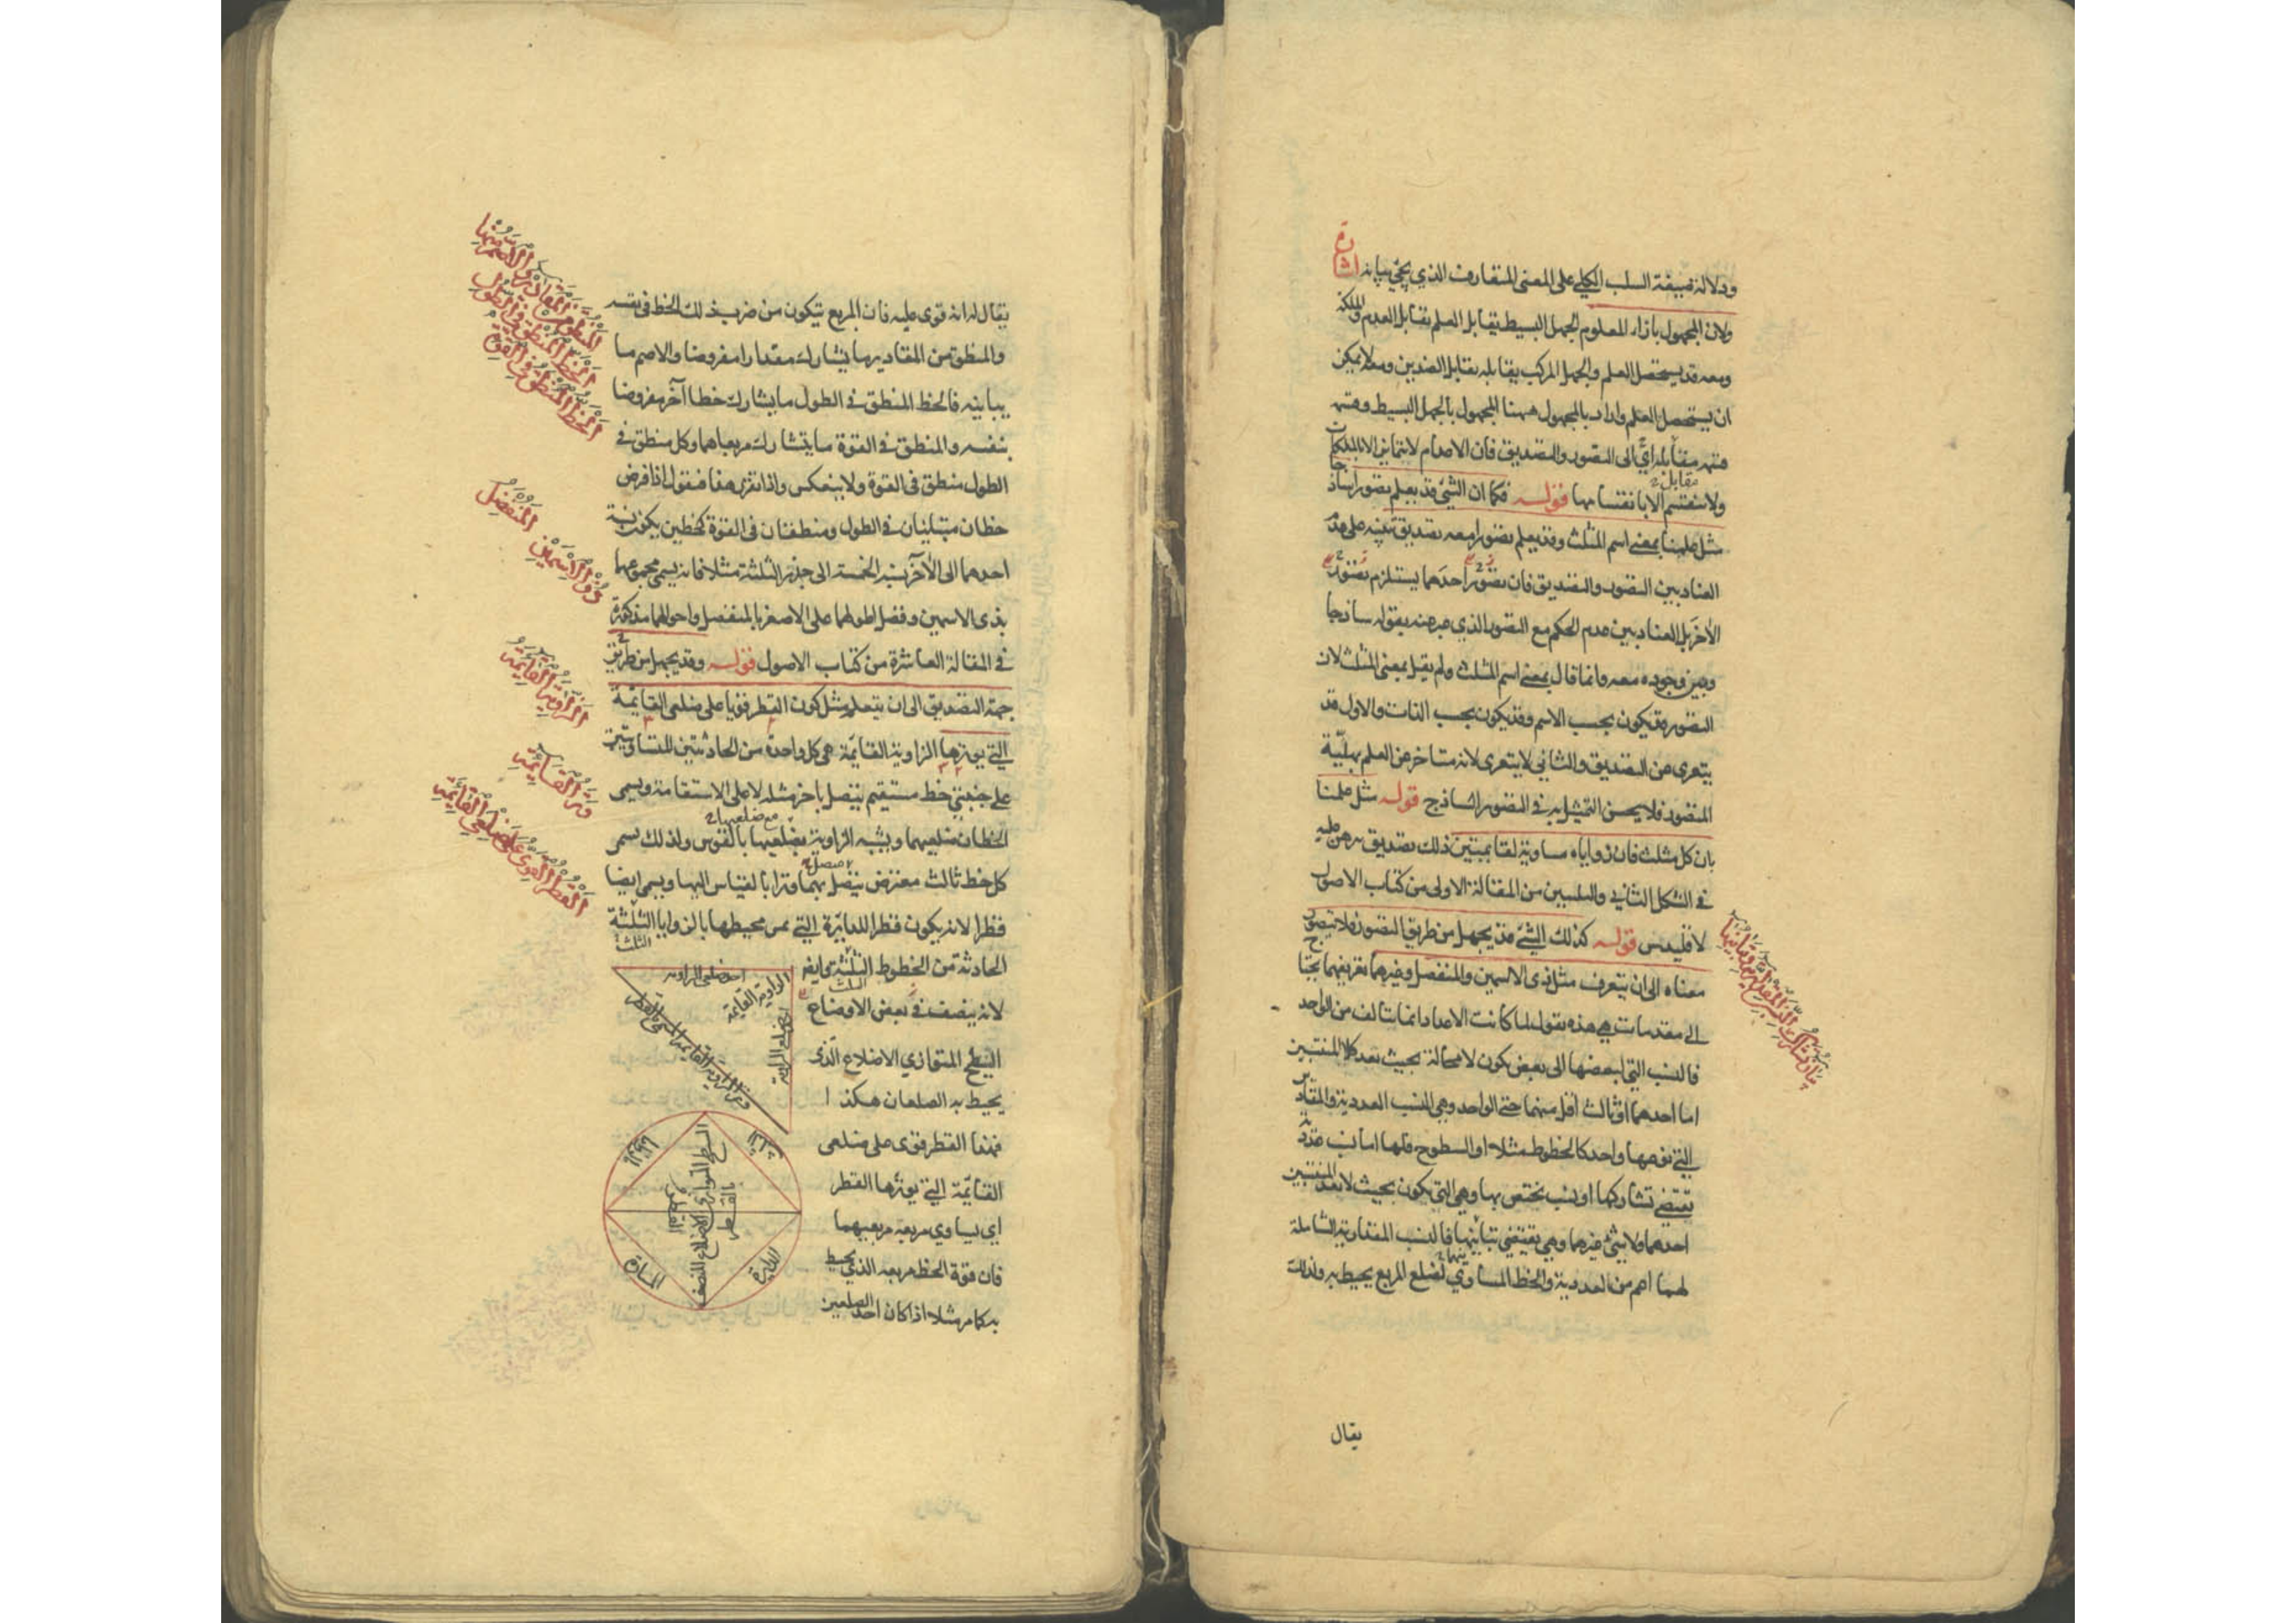 ودلالة صيغة السلب الكلي على المعنى المتعارف الذي يجئ بيانه اشارة
ولان المجهول بازاء المعلوم الجهل البسيط يقابل العلم تقابل العدم والملكة
ومعه قد يستحصل العلم والجهل المركب يقابله تقابل الضدين ومعه لا يمكن
ان يستحصل العلم واراد بالمجهول ههنا المجهول بالجهل البسيط وقسمه
قسمة مقابله اي الى التصور والتصديق فان الاعدام لا تتمايز الا بالملكات
مقابل
ولا تنقسم الا بانقسامها قوله فكما ان الشئ قد يعلم تصورا ساذجا
مثل علمنا بمعنى اسم المثلث وقد يعلم تصورا معه تصديق تنبيه على عدم
العناد بين التصور والتصديق فان تصور احدهما يستلزم تصور
الآخر بل العناد بين عدم الحكم مع التصور الذي عبر عنه بقوله ساذجا
وبين وجوده معه وانما قال بمعنى اسم المثلث ولم يقل بمعنى المثلث لان
التصور قد يكون بحسب الاسم وقد يكون بحسب الذات والاول قد
يتعرى عن التصديق والثاني لا يتعرى لانه متأخر عن العلم بهلية
المتصور فلا يحسن التمثيل به في التصور الساذج قوله مثل علمنا
بان كل مثلث فان زواياه مساوية لقائمتين ذلك تصديق برهن عليه
في الشكل الثاني والثلثين من المقالة الاولى من كتاب الاصول
لاقليدس قوله كذلك الشئ قد يجهل من طريق التصور فلا يتصور
معناه الى ان يتعرف مثل ذي الاسمين والمنفصل وغيرهما تعريفهما يحتاج
الى مقدمات هي هذه نقول لما كانت الاعداد انما تتألف من الواحد
فالنسب التي لبعضها الى بعض يكون لا محالة بحيث يعد كلا المنتسبين
اما احدهما او ثالث اقل منهما حتى الواحد وهي النسب العددية والمقادير
التي نوعها واحد كالخطوط مثلا او السطوح فلها اما نسب عددية
تقتضي تشاركها او نسب تختص بها وهي التي تكون بحيث لا يعد المنتسبين
احدهما ولا شئ غيرهما وهي تقتضي تباينها فالنسب المقدارية الشاملة
لهما اعم من العددية والخط المساوي لضلع المربع يحيط به ولذلك
يقال
يقال له انه قوي عليه فان المربع يتكون من ضرب ذلك الخط في نفسه
والمنطق من المقادير ما يشارك مقدارا مفروضا والاصم ما
يباينه فالخط المنطق في الطول ما يشارك خطا آخر مفروضا
بنفسه والمنطق في القوة ما يتشارك مربعاهما وكل منطق في
الطول منطق في القوة ولا ينعكس واذا تقرر هذا فنقول اذا فرض
خطان متباينان في الطول ومنطقان في القوة كخطين يكون نسبة
احدهما الى الآخر نسبة الخمسة الى جذر الثلثة مثلا فانه يسمى مجموعهما
بذي الاسمين وفضل اطولهما على الاصغر بالمنفصل واحوالهما مذكورة
في المقالة العاشرة من كتاب الاصول قوله وقد يجهل من طريق
جهة التصديق الى ان يتعلم مثل كون القطر قويا على ضلعي القائمة
التي يوترها الزاوية القائمة هي كل واحدة من الحادثتين المتساويتين
على جنبتي خط مستقيم يتصل باخر مثله لا على الاستقامة ويسمى
الخطان ضلعيهما ويشبه الزاوية مع ضلعيها بالقوس ولذلك يسمى
كل خط ثالث معترض يتصل بهما وترا بالقياس اليها ويسمى ايضا
قطرا لانه يكون قطرا للدائرة التي يمر محيطها بالزوايا الثلثة
الحادثة من الخطوط الثلثة وايضا
لانه ينصف في بعض الاوضاع
السطح المتوازي الاضلاع الذي
يحيط به الضلعان هكذا
فهذا القطر قوي على ضلعي
القائمة التي يوترها القطر
اي يساوي مربعه مربعيهما
فان قوة الخط مربعه الذي يحيط
به كما مر مثلا اذا كان احد الضلعين
المنفصل
ذو الاسمين
الزاوية القائمة
وتر القائمة
القطر القوي على ضلعي القائمة
الخط المنطق في الطول
الخط المنطق في القوة
احد ضلعي الزاوية
الزاوية القائمة
وتر الزاوية القائمة
السطح المتوازي الاضلاع المنصف
بالقطر
القطر
الدائرة
المارة